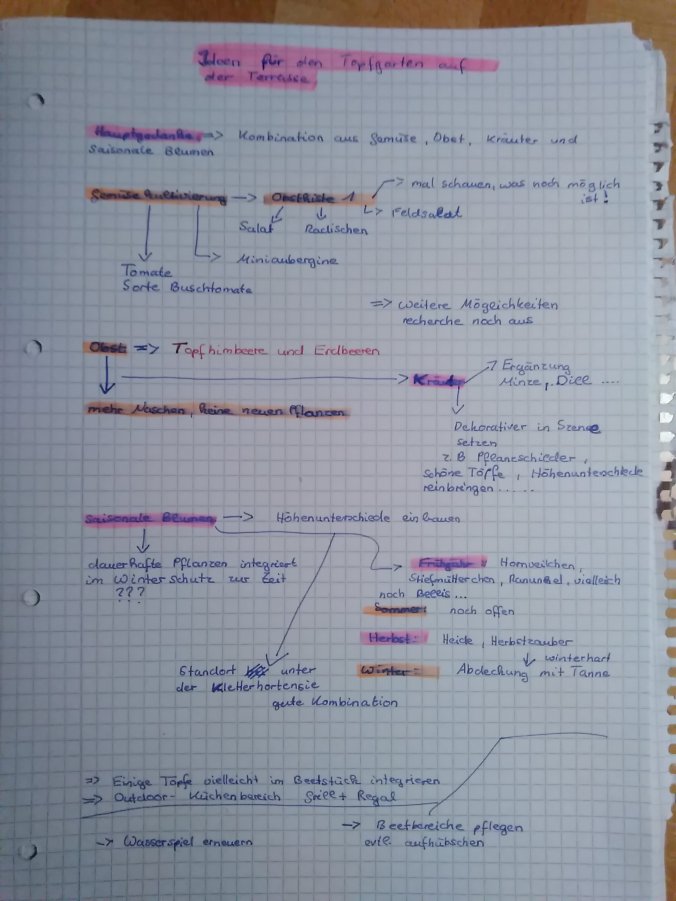 Ideen für den Topfgarten auf
der Terrasse
Hauptgedanke: => Kombination aus Gemüse, Obst, Kräuter und
saisonale Blumen
Gemüse Kultivierung -> Obstkiste 1
-> mal schauen, was noch möglich
ist!
-> Feldsalat
Salat
Radischen
-> Miniaubergine
Tomate
Sorte Buschtomate
=> weitere Möglichkeiten
recherche noch aus
Obst => Topfhimbeere und Erdbeeren
-> Kräuter
Ergänzung
Minze, Dill ....
mehr Naschen, keine neuen Pflanzen
Dekorativer in Szene
setzen
z.B Pflanzschilder,
schöne Töpfe, Höhenunterschiede
reinbringen ......
Saisonale Blumen -> Höhenunterschiede einbauen
dauerhafte Pflanzen integriert
im Winterschutz zur Zeit
???
Frühjahr: Hornveilchen,
Stiefmütterchen, Ranunkel, vielleich
noch Bellis ...
Sommer: noch offen
Herbst: Heide, Herbstzauber
winterhart
Winter: Abdeckung mit Tanne
Standort unter
der Kletterhortensie
gute Kombination
=> Einige Töpfe vielleicht im Beetstück integrieren
=> Outdoor- Küchenbereich Grill + Regal
-> Beetbereiche pflegen
evtl. aufhübschen
-> Wasserspiel erneuern